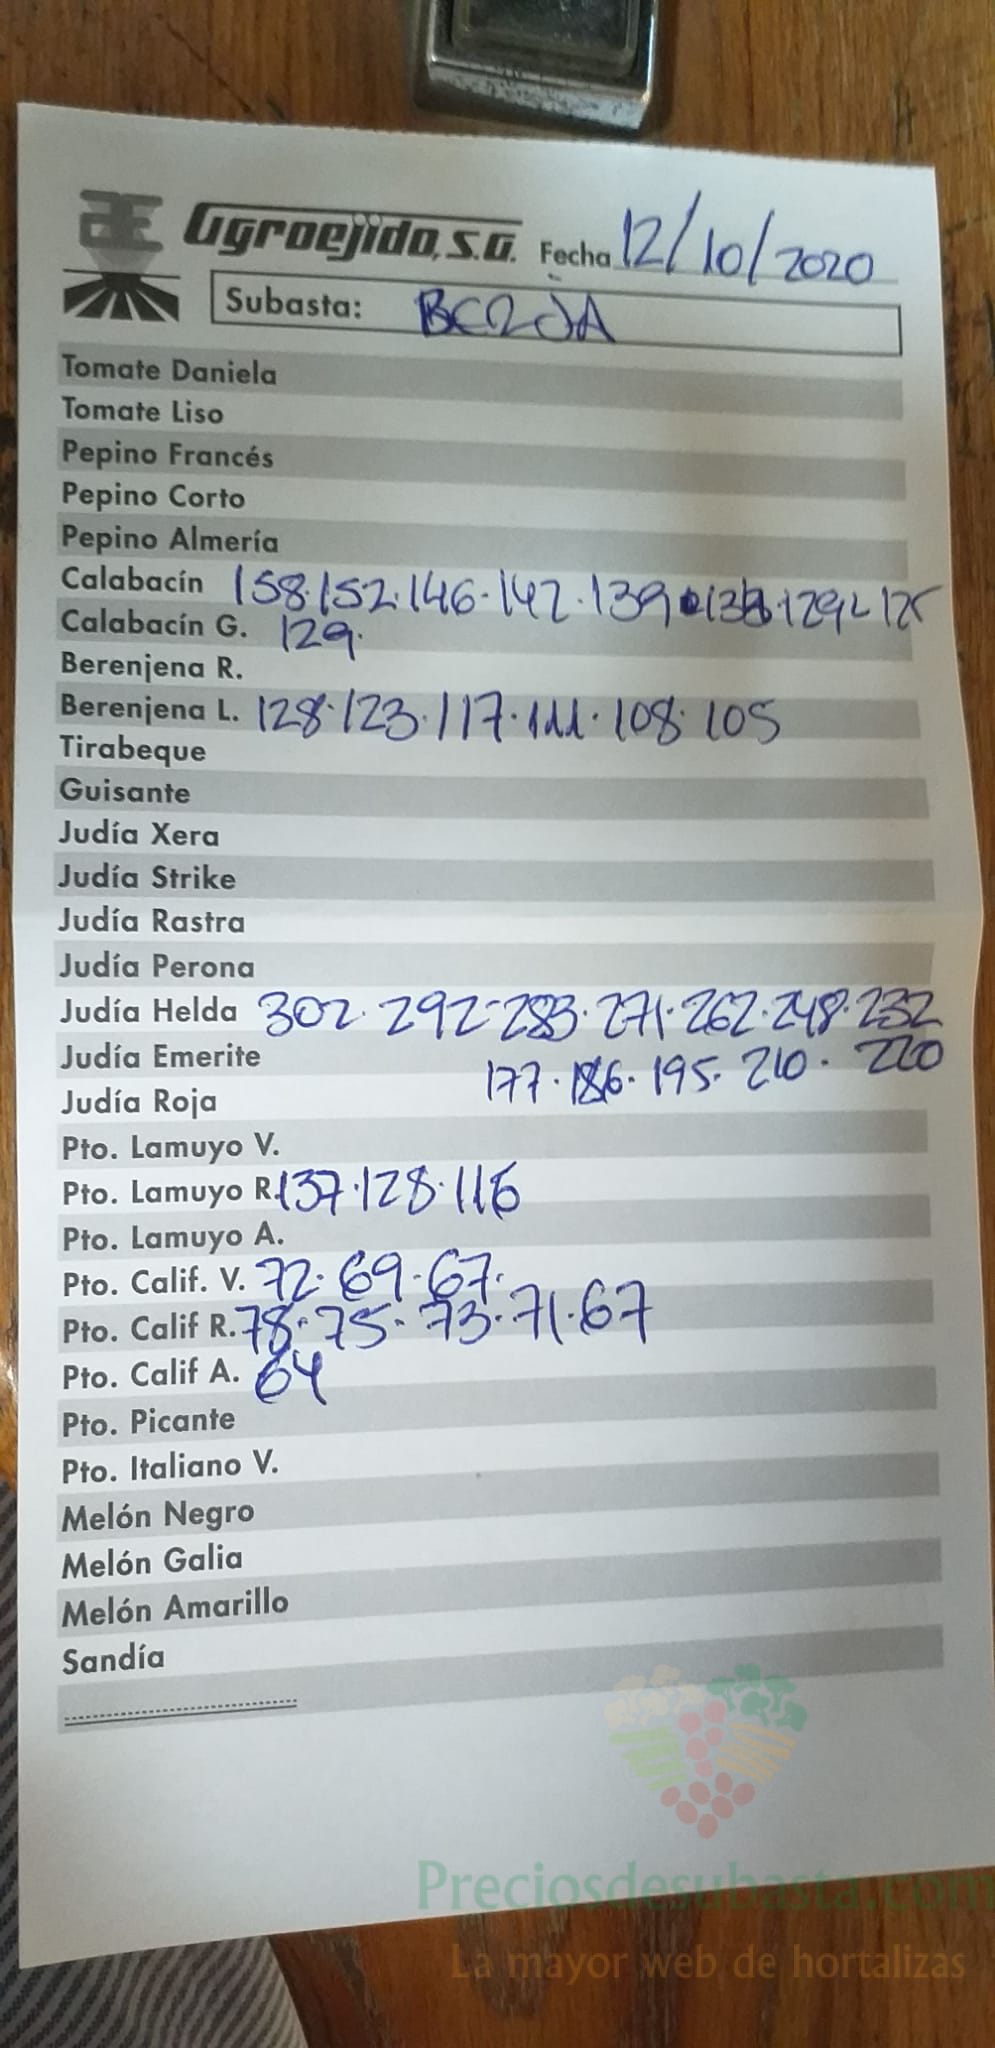 Agroejido, S.A. Fecha 12/10/2020
Subasta: BERJA
Tomate Daniela
Tomate Liso
Pepino Francés
Pepino Corto
Pepino Almería
Calabacín 158·152·146·142·139·138·129·125
Calabacín G. 129·
Berenjena R.
Berenjena L. 128·123·117·111·108·105
Tirabeque
Guisante
Judía Xera
Judía Strike
Judía Rastra
Judía Perona
Judía Helda 302·292·283·271·262·248·232
Judía Emerite 177·186·195·210·220
Judía Roja
Pto. Lamuyo V.
Pto. Lamuyo R. 137·128·116
Pto. Lamuyo A.
Pto. Calif. V. 72·69·67·
Pto. Calif R. 78·75·73·71·67
Pto. Calif A. 64
Pto. Picante
Pto. Italiano V.
Melón Negro
Melón Galia
Melón Amarillo
Sandía
Preciosdesubasta.com
La mayor web de hortalizas